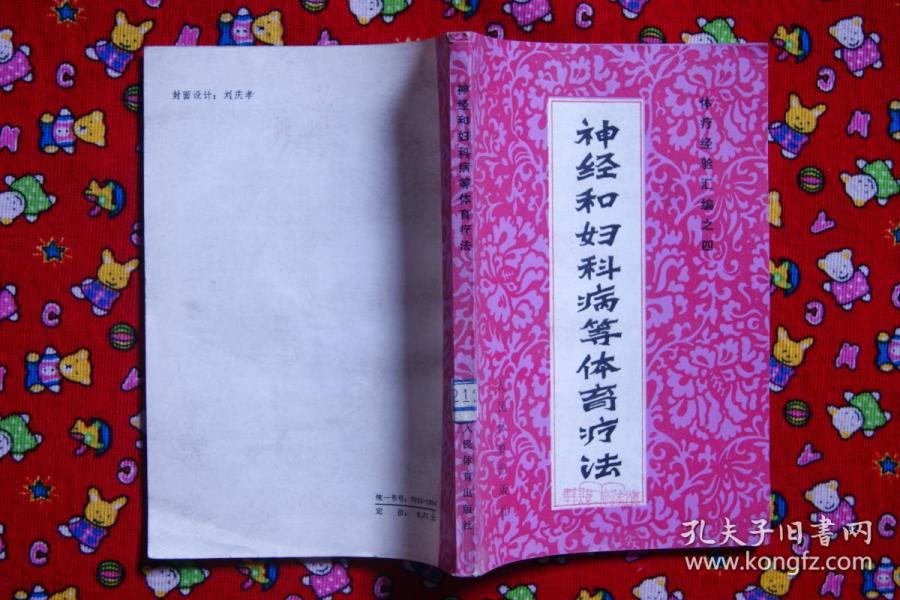 封面设计：刘庆孝
统一书号：
定 价：
神经和妇科病等体育疗法
212
人民体育出版社
体疗经验汇编之四
神经和妇科病等体育疗法
人民体育出版社
孔夫子旧書网
www.kongfz.com